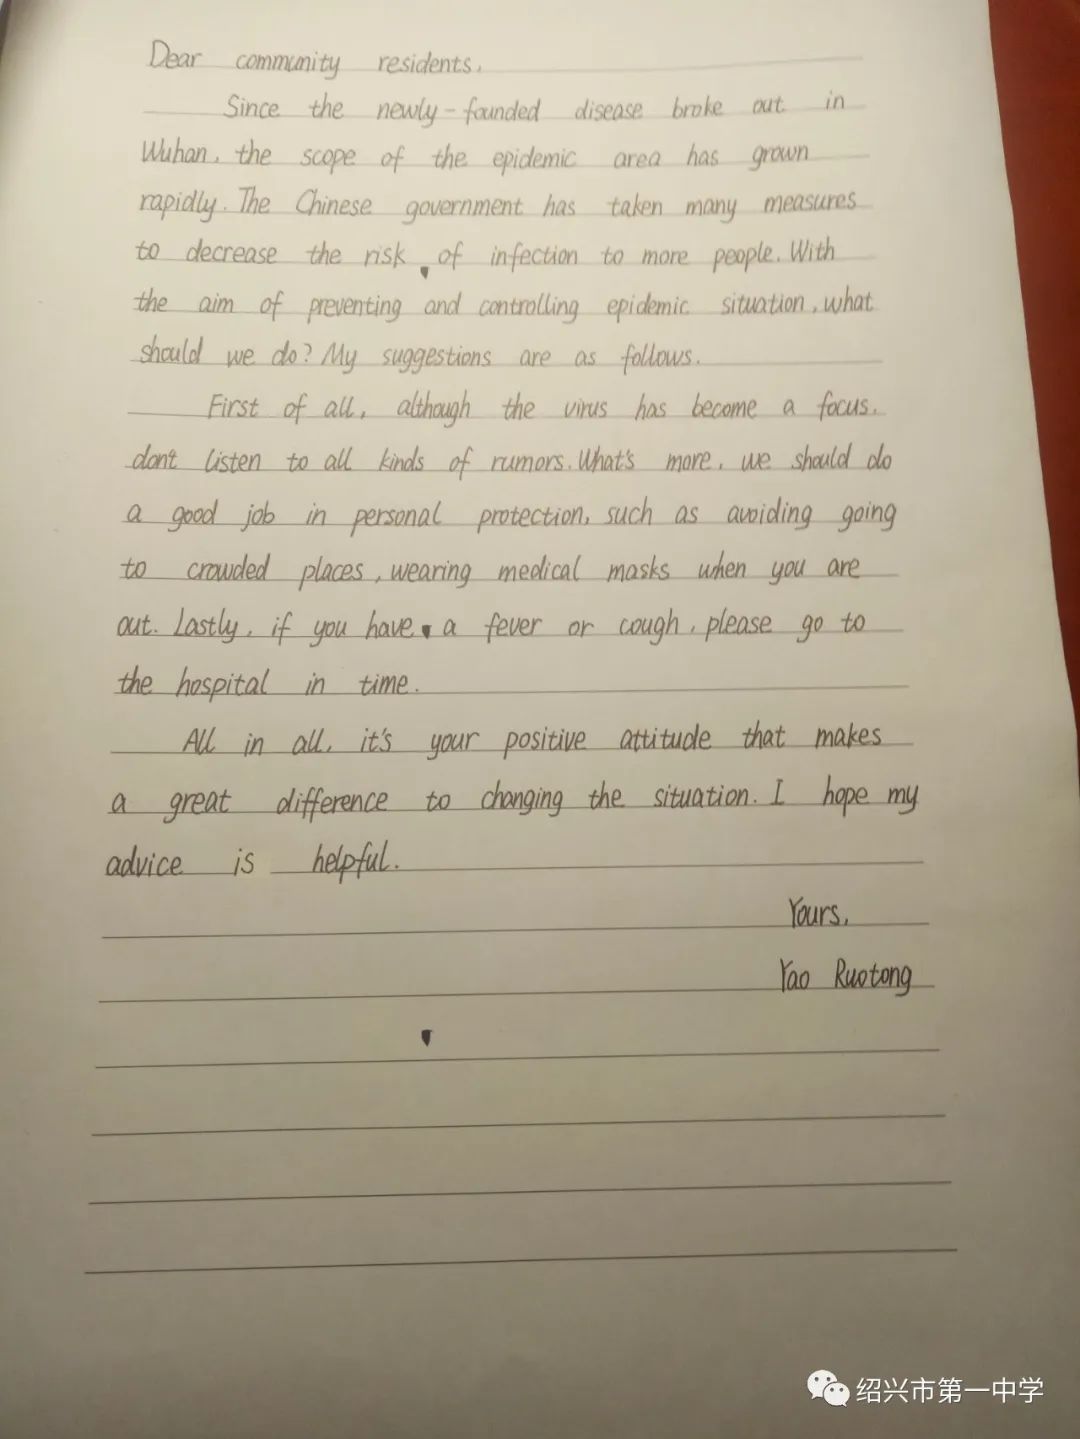 Dear community residents,
Since the newly-founded disease broke out in
Wuhan, the scope of the epidemic area has grown
rapidly. The Chinese government has taken many measures
to decrease the risk of infection to more people. With
the aim of preventing and controlling epidemic situation, what
should we do? My suggestions are as follows.
First of all, although the virus has become a focus,
don't listen to all kinds of rumors. What's more, we should do
a good job in personal protection, such as avoiding going
to crowded places, wearing medical masks when you are
out. Lastly, if you have a fever or cough, please go to
the hospital in time.
All in all, it's your positive attitude that makes
a great difference to changing the situation. I hope my
advice is helpful.
Yours,
Yao Ruotong
绍兴市第一中学